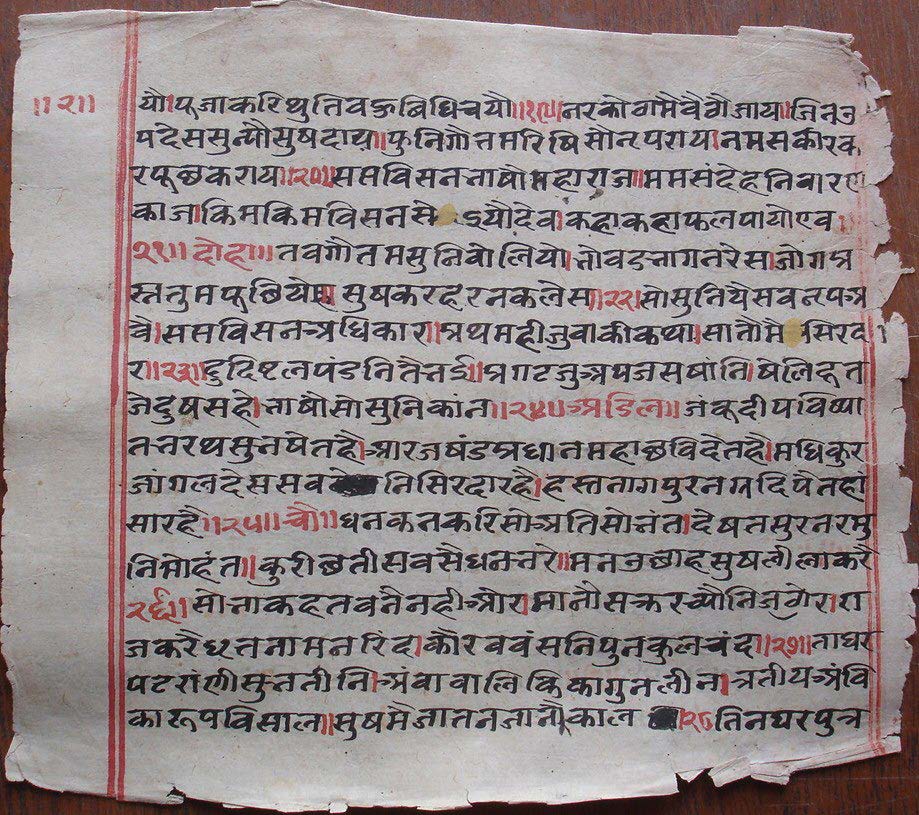 ॥२॥
यौ।पूजाकरिथुतिवक्तबिधिचयौ॥१९॥नरकोगमैवैगैजाया।जिनउ
पदेससुन्यौसुषदाय॥फुनिगौतमरिषिसोनपराय।नमसकारक
रपूछकराया॥२०॥सप्तविसनभाषौमहाराज॥ममसंदेहनिवारण
काजा।किमकिमविसनसे इयौदेव।कहाकहाफलपायोएव॥
२१॥दोहा॥तवगौतमसुनिवोलियो।भोवडभागनरेस।जोगप्र
स्ततुमपूछियो॥सुषकरहरनकलेस॥२२॥सोसुनियैसवनपअ
वै।सप्तविसनअधिकार।प्रथमहीजुवाकीकथा।सातोमै सिरदा
र॥२३॥दुदिष्टलपंडनितैभई।प्रगटजुअपजसषांनि।षेलिदूत
जेदुषसहे।भाषौसोसुनिकांन॥२४॥अडिल॥जंबूदीपविष्या
तभरथसुनषेतहै।आरजषंडप्रधानमहाछविदेतहै।मधिकुर
जांगलदेससव निसिरदारहै।हस्तनागपुरनग्रदिपैतहां
सारहै॥२५॥चौ॥धनकनकरिसोअतिसोभंत।देषतसुरनरमु
निमोहंत॥कुरीछतीसवसैधनभरे॥मनउछाहसुषलीलाकरै
२६॥सोभाकहतवनैनहीओर।मानौसक्ररच्यौनिजगेर।रा
जकरैधृतनामनरिंद।कौरववंसनिपुनकुलचंद॥२७॥ताघर
पटरांणीसुभतीनि।अंवावालिकिकागुनलीन।त्रतीयअंवि
कारूपविसाल॥सुषमैजातनजानौकाल ॥२८तिनघरपुत्र